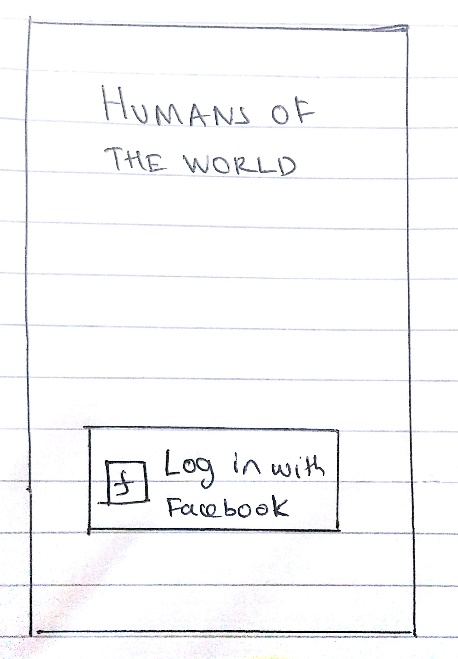 HUMANS OF
THE WORLD
f Log in with
Facebook